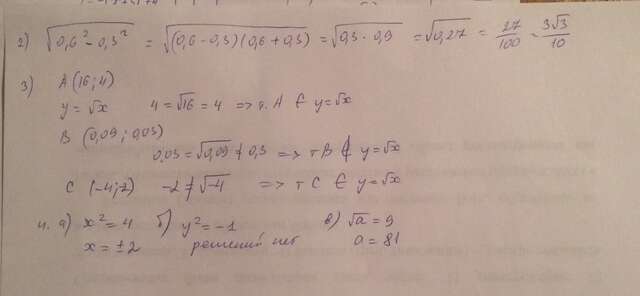 2) √(0,6² - 0,3²) = √((0,6 - 0,3)(0,6 + 0,3)) = √(0,3 · 0,9) = √0,27 = 27/100 = 3√3/10
3) A (16; 4)
y = √x 4 = √16 = 4 => т. A ∈ y = √x
B (0,09; 0,03)
0,03 = √0,09 ≠ 0,3 => т B ∉ y = √x
C (-4; 2) -2 ≠ √-4 => т C ∈ y = √x
4. а) x² = 4 б) y² = -1 в) √a = 9
x = ±2 решений нет a = 81